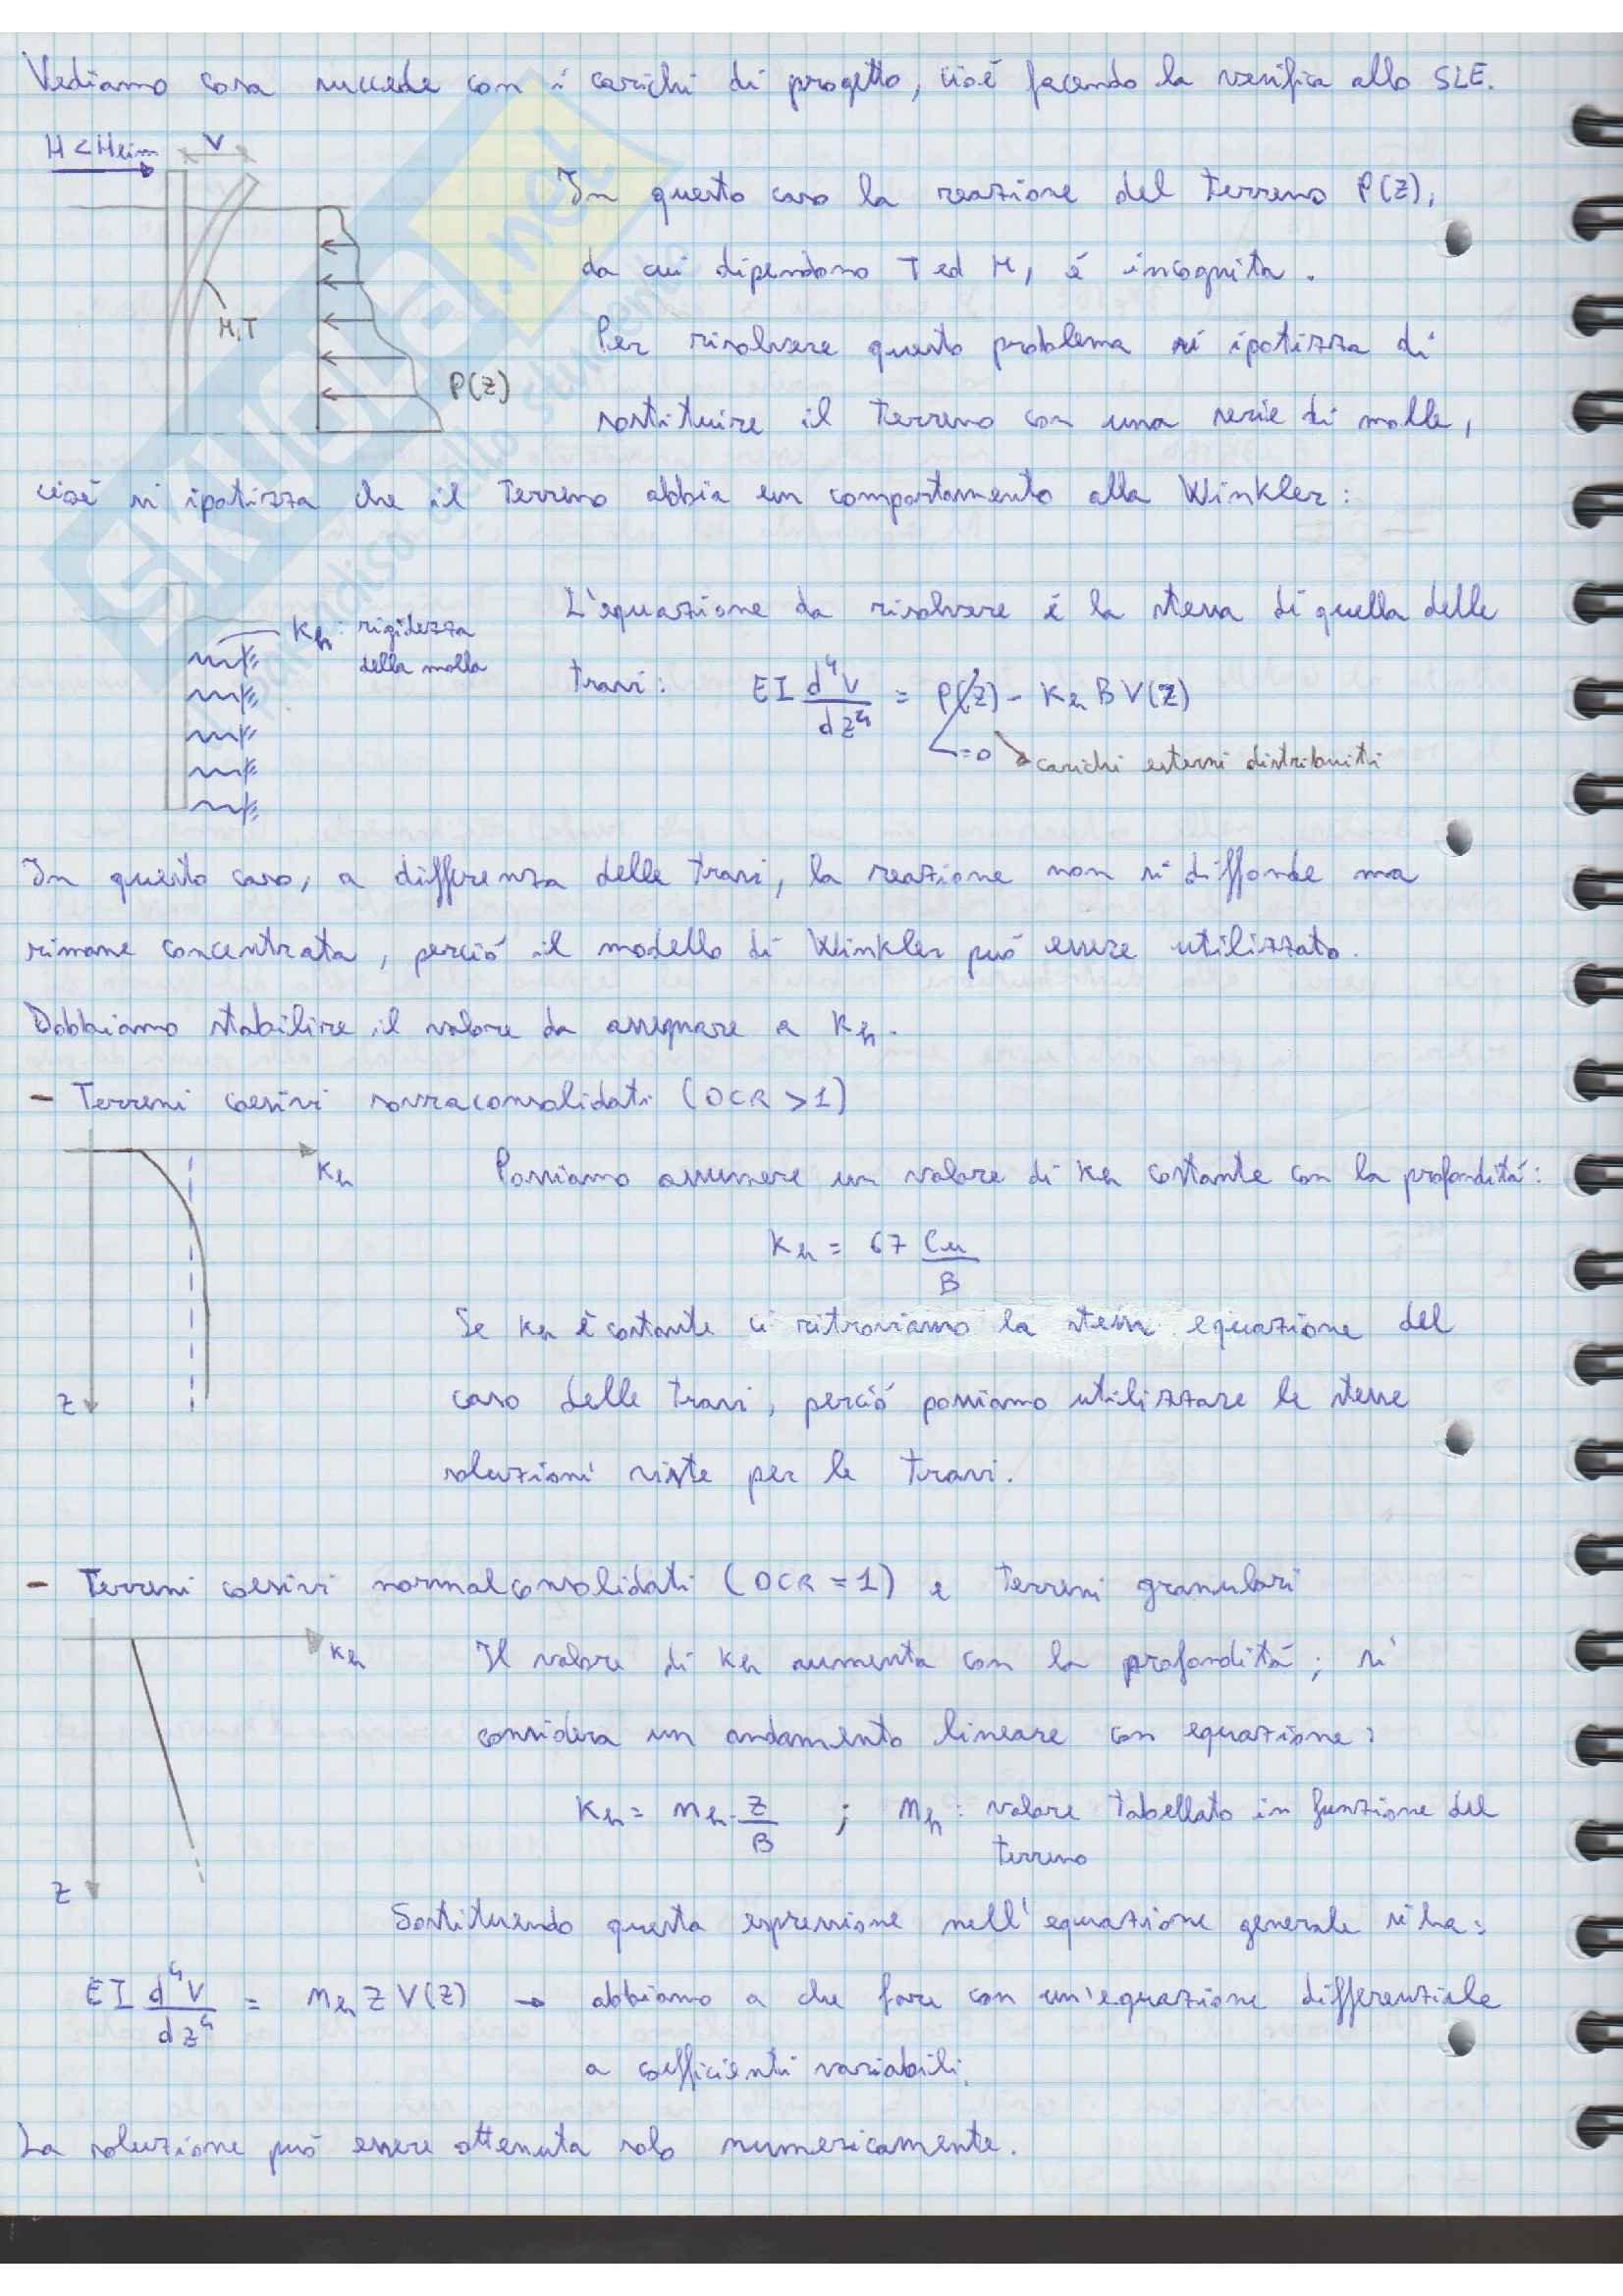 Vediamo cosa succede con i carichi di progetto, cioé facendo la verifica allo SLE.
H < Hlim
V
In questo caso la reazione del terreno P(z),
da cui dipendono T ed M, é incognita.
M,T
Per risolvere questo problema si ipotizza di
P(z)
sostituire il terreno con una serie di molle,
cioé si ipotizza che il terreno abbia un comportamento alla Winkler:
L'equazione da risolvere é la stessa di quella delle
Kh: rigidezza
della molla
travi: EI d⁴V/dz⁴ = P(z) - Kh B V(z)
=0 carichi esterni distribuiti
In questo caso, a differenza delle travi, la reazione non si diffonde ma
rimane concentrata, perció il modello di Winkler puó essere utilizzato.
Dobbiamo stabilire il valore da assegnare a Kh.
- Terreni coesivi sovraconsolidati (OCR > 1)
Kh
Possiamo assumere un valore di Kh costante con la profonditá:
Kh = 67 Cu/B
Se Kh è costante ci ritroviamo la stessa equazione del
z
caso delle travi, perció possiamo utilizzare le stesse
soluzioni viste per le travi.
- Terreni coesivi normalconsolidati (OCR = 1) e terreni granulari
Kh
Il valore di Kh aumenta con la profonditá; si
considera un andamento lineare con equazione:
Kh = nh · z/B ; nh: valore tabellato in funzione del
terreno
z
Sostituendo questa espressione nell'equazione generale si ha:
EI d⁴V/dz⁴ = nh z V(z) → abbiamo a che fare con un'equazione differenziale
a coefficienti variabili.
La soluzione puó essere ottenuta solo numericamente.
SKUOLA.net